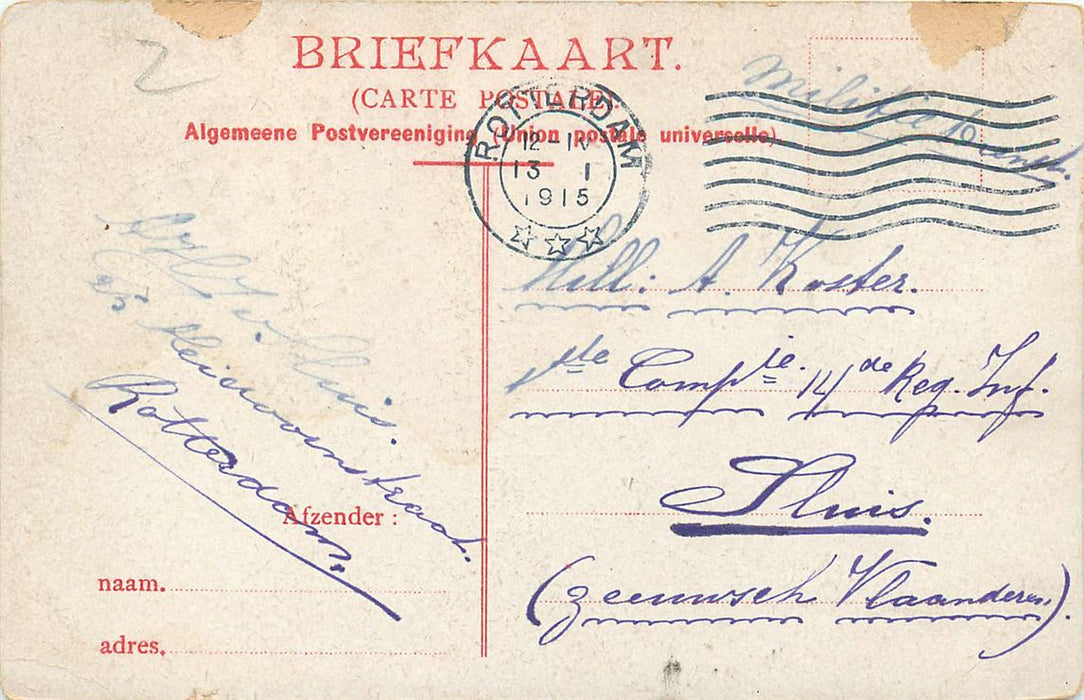 2
BRIEFKAART.
(CARTE POSTALE)
Algemeene Postvereeniging (Union postale universelle)
ROTTERDAM
12-IV
13 1
1915
Militie Dienst.
Mill: A. Koster.
1ste Compie. 14de Reg. Inf.
Sluis.
(Zeeuwsch Vlaanderen).
v. Sluis.
Rotterdam.
Afzender:
naam.
adres.